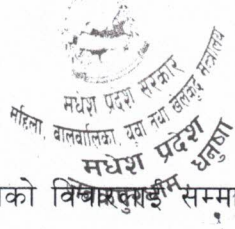 मधेश प्रदेश सरकार
महिला, बालबालिका, युवा तथा खेलकुद मन्त्रालय
मधेश प्रदेश
धनुषा
को सम्म